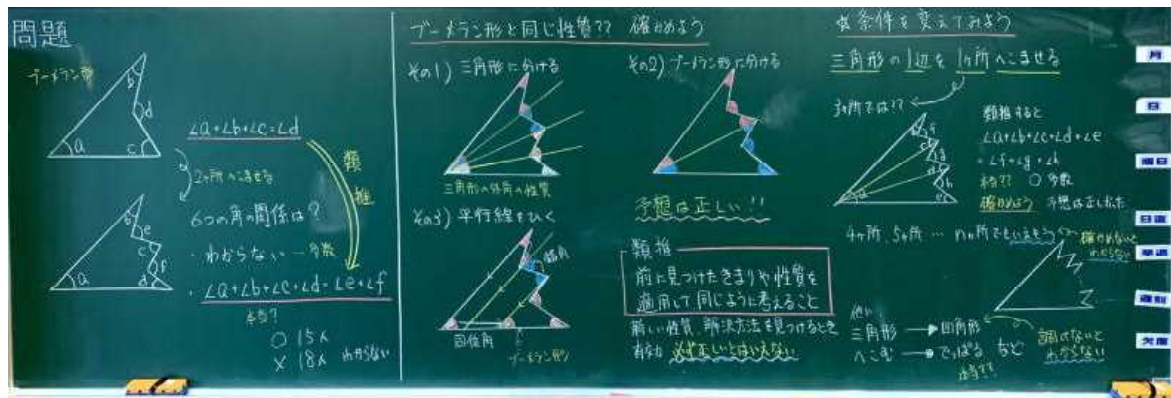 問題
ブーメラン形
b
d
a
c
∠a+∠b+∠c=∠d
2ヶ所へこませる
類推
6つの角の関係は?
b
e
c
f
a
d
・わからない…多数
・∠a+∠b+∠c+∠d=∠e+∠f
本当?
○ 15人
× 18人 わからない
ブーメラン形と同じ性質?? 確かめよう
その1) 三角形に分ける
三角形の外角の性質
その2) ブーメラン形に分ける
予想は正しい!!
その3) 平行線をひく
錯角
同位角
ブーメラン形
類推
前に見つけたきまりや性質を
適用して同じように考えること
新しい性質、解決方法を見つけるとき
有効 必ず正しいとはいえない
☆条件を変えてみよう
三角形の1辺を1ヶ所へこませる
3ヶ所では??
a
f
g
h
e
類推すると
∠a+∠b+∠c+∠d+∠e
=∠f+∠g+∠h
本当?? ○ 多数
確かめよう 予想は正しかった
4ヶ所、5ヶ所… nヶ所でもいえそう
確かめないと
わからない
他に
三角形 → 四角形
へこむ → でっぱる など
本当??
調べないと
わからない
月
日
曜日
日直
早退
遅刻
欠席